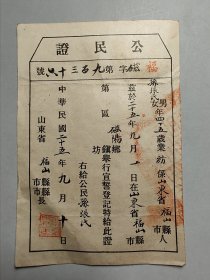 公民證
福字第九百三十號
張氏男女年四十五歲業紡係山東省福山縣市人
茲於二十五年九月一日在山東省福山縣市
第區鄉鎮坊舉行宣誓登記特給此證
右給公民張氏
山東省福山縣市縣長市長
中華民國二十五年九月十日